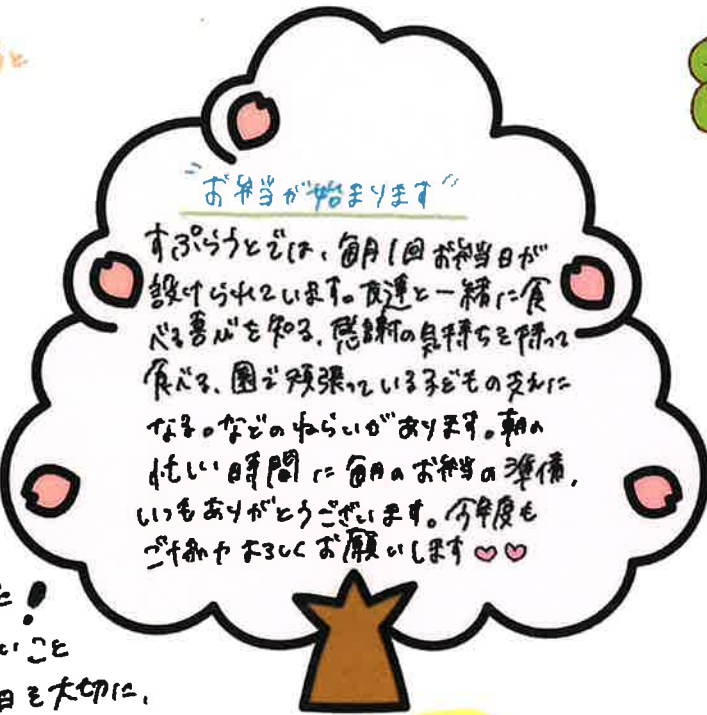 "お弁当が始まります"
すぷらうとでは、毎月1回お弁当日が
設けられています。友達と一緒に食
べる喜びを知る、感謝の気持ちを持って
食べる、園で頑張っている子どもの支えに
なる。などのねらいがあります。朝の
忙しい時間に毎月のお弁当の準備、
いつもありがとうございます。今年度も
ご協力よろしくお願いします♡♡
た!
いこと
日を大切に、